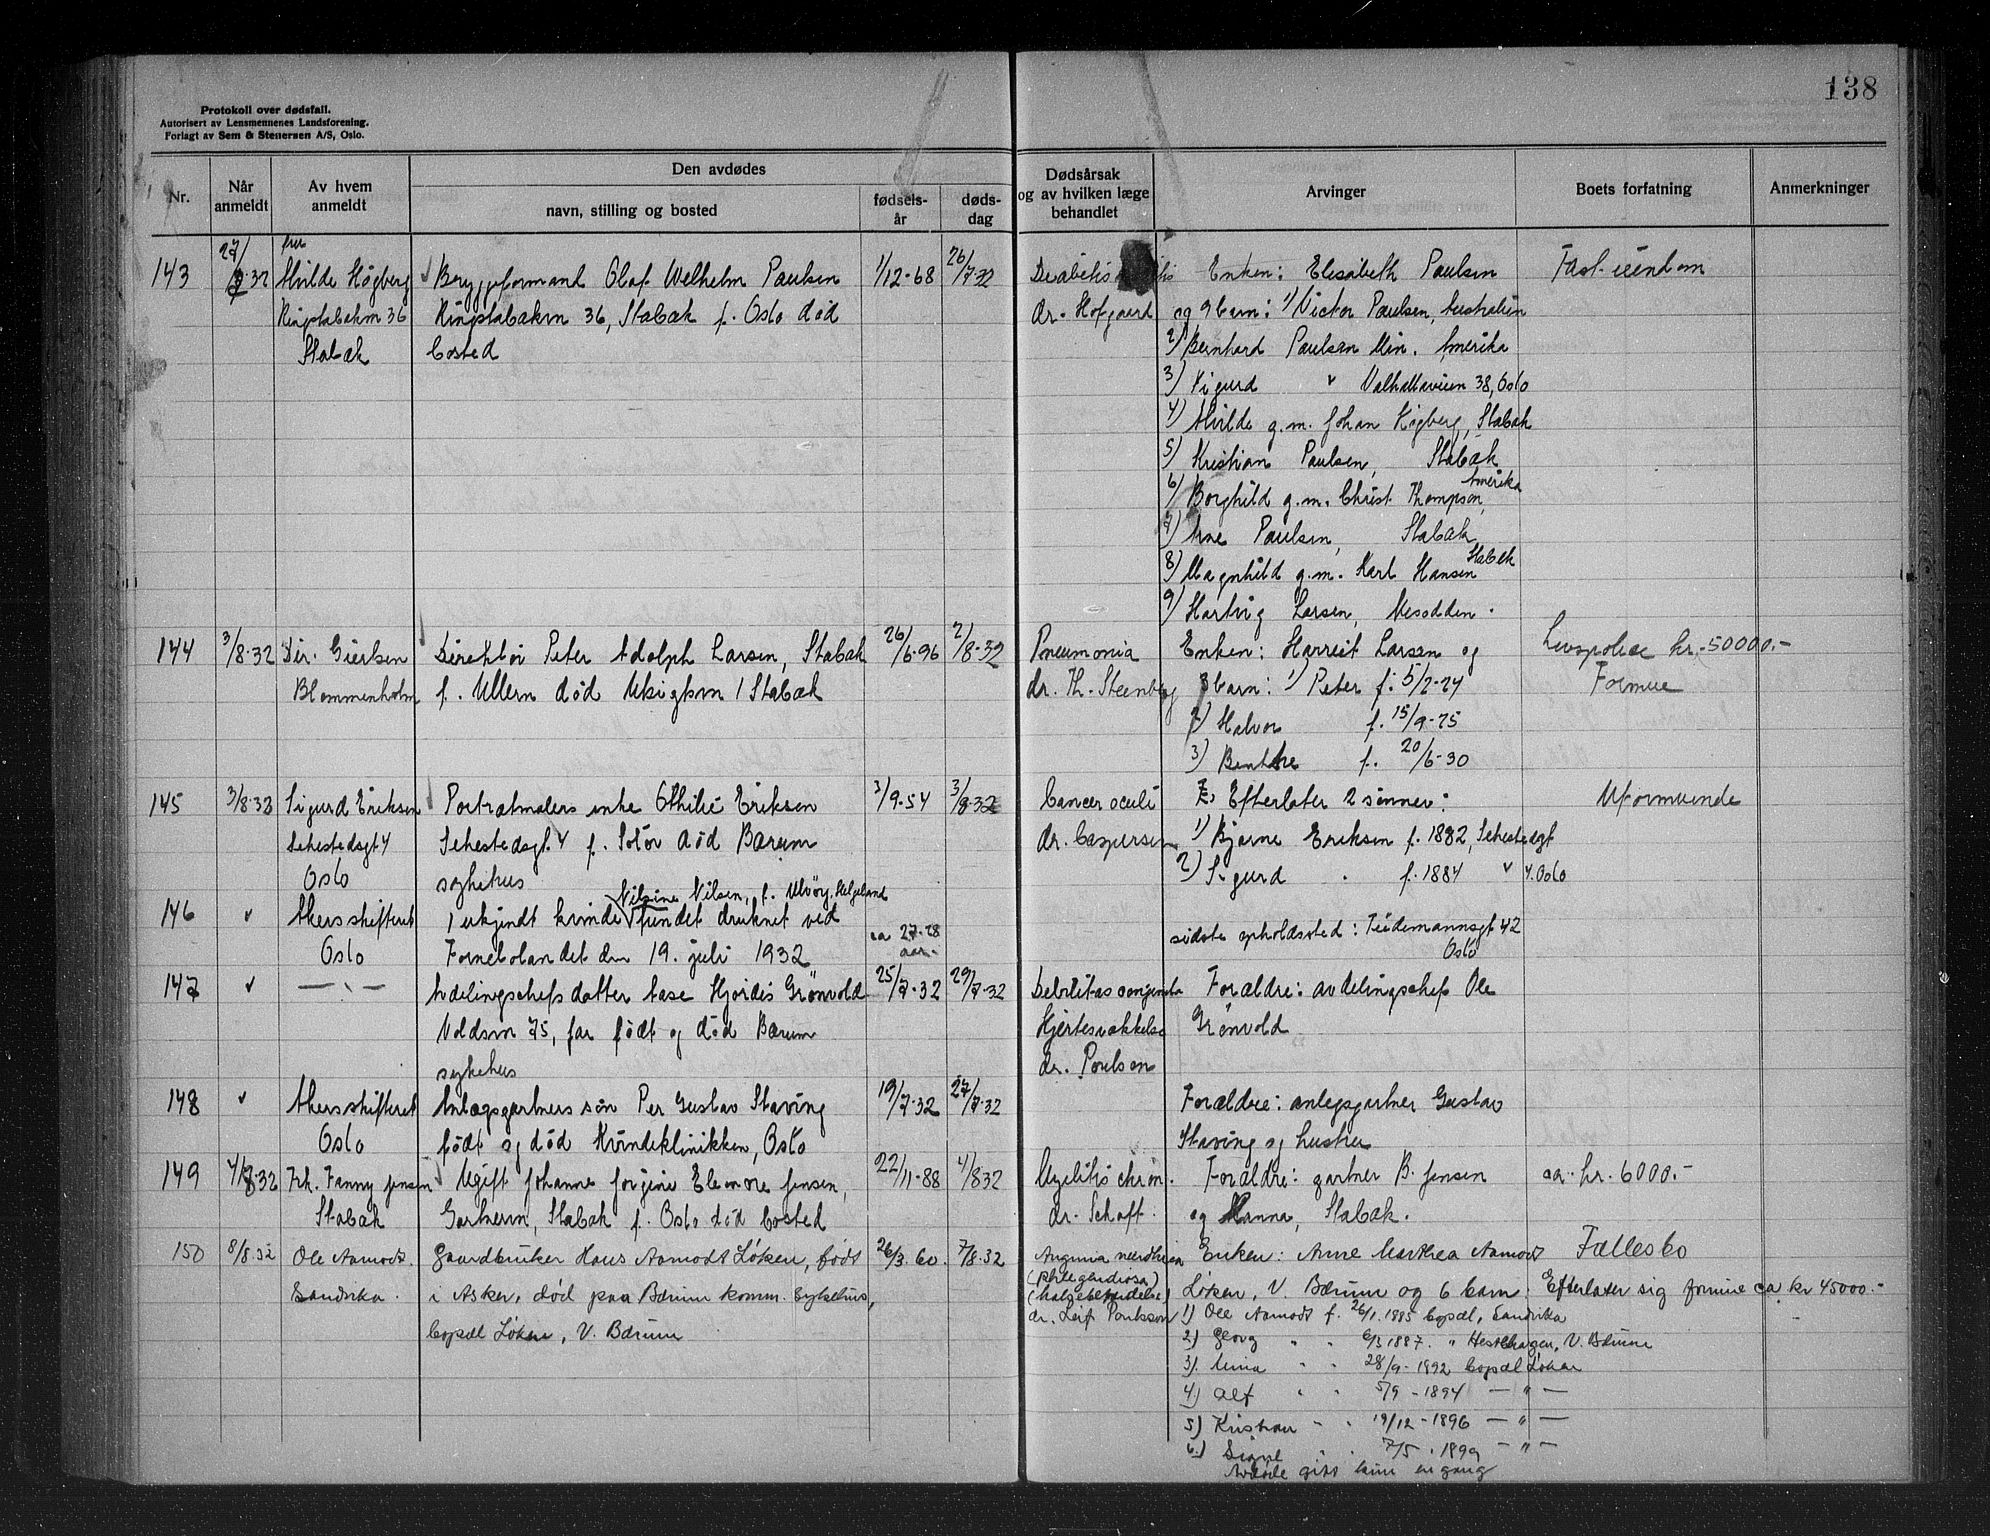 138
Protokoll over dødsfall.
Autorisert av Lensmennenes Landsforening.
Forlagt av Sem & Stenersen A/S, Oslo.
Nr.
Når anmeldt
Av hvem anmeldt
Den avdødes
navn, stilling og bosted
fødsels-år
døds-dag
Dødsårsak og av hvilken læge behandlet
Arvinger
Boets forfatning
Anmerkninger
143 27/7-32 fru Hvilde Høgberg Bryggeformand Olaf Welhelm Paulsen 1/12-68 26/7-32 Diabetis Enken: Elisabeth Paulsen Fast eiendom
Ringstabækvn 36 Ringstabækvn 36, Stabæk f. Oslo død dr. Hofgaard og 9 barn: 1) Victor Paulsen, Australien
Stabæk bosted 2) Bernhard Paulsen Min. Amerika
3) Sigurd " Valhallaveien 38, Oslo
4) Hvilde g.m. Johan Høgberg, Stabæk
5) Kristian Paulsen, Stabæk
6) Borghild g.m. Christ Thompson, Amerika
7) Arne Paulsen, Stabæk
8) Magnhild g.m. Karl Hansen Stabæk
9) Hartvig Larsen, Nesodden.
144 3/8-32 Dir. Giertsen Direktør Peter Adolph Larsen, Stabæk 26/6-96 2/8-32 Pneumonia Enken: Harriet Larsen og Livspolise kr. 50000.-
Blommenholm f. Ullern død Stabæk dr. Th. Steenberg 3 barn: 1) Peter f. 5/2-24 Formue
2) Halvor f. 15/9-25
3) Benthe f. 20/6-30
145 3/8-32 Sigurd Eriksen Portrætmalers enke Othilie Eriksen 3/9-54 3/8-32 Cancer oculi Efterlater 2 sønner: Uformuende
Sehestedsgt. 4 Sehestedsgt. 4 f. Solør død Bærum dr. Caspersen 1) Bjarne Eriksen f. 1882, Sehestedsgt
Oslo sykehus 2) Sigurd " f. 1884 " 4. Oslo
146 " Akersskifteret 1 ukjendt kvinde Nilsine Nilsen, f. Helgeland fundet druknet ved ca 27-28 aar. sidste opholdssted: Tidemannsgt 42
Oslo Fornebolandet den 19. juli 1932 Oslo
147 " —"— Avdelingschefs datter Aase Hjørdis Grønvold 25/7-32 29/7-32 Debilitas congenita Forældre: avdelingschef Ole
Voldsvn 75, født og død Bærum Hjertesvækkelse Grønvold
sykehus dr. Poulson
148 " Akersskifteret Anlægsgartners søn Per Gustav Staving 19/7-32 27/7-32 Forældre: anlegsgartner Gustav
Oslo født og død Kvindeklinikken, Oslo Staving og hustru
149 4/8-32 Frk. Fanny Jensen Ugift Johanne Jorgine Eleonore Jensen, 22/11-88 4/8 32 Myelitis chron. Forældre: gartner B. Jensen ca. kr. 6000.-
Stabæk Gartnern, Stabæk f. Oslo død bosted dr. Schaft. og Hanna, Stabæk.
150 8/8.32 Ole Aamodt. Gaardbruker Hans Aamodt Løken, født 26/3.60. 7/8.32 Angina Enken: Anne Marthea Aamodt Fællesbo
Sandvika. i Asker, død paa Bærum komm. Sykehus, (halsebetendelse) Løken, V. Bærum og 6 barn: Efterlater sig formue ca kr 45000.-
bopæl Løken, V. Bærum dr. Leif Poulsson 1) Ole Aamodt f. 26/1.1885 bopæl, Sandvika
2) Georg " " 6/3 1887. " Hestehagen, V. Bærum
3) Anna " " 28/9-1892 bopæl Løken
4) Alf " " 5/9-1894 — " —
5) Kristian " " 19/12-1896 — " —
6.) Signe " " 7/5.1899 — " —
Avdøde gift kun en gang